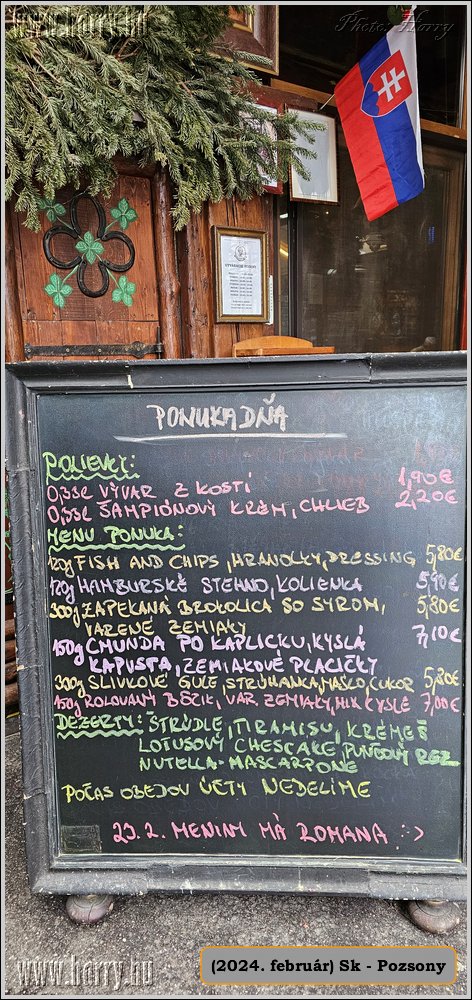 www.harry.hu
Photo: Harry
PONUKA DŇA
POLIEVKY:
0,33l VÝVAR Z KOSTÍ 1,90€
0,33l ŠAMPIÓNOVÝ KRÉM, CHLIEB 2,20€
MENU PONUKA:
120g FISH AND CHIPS, HRANOLKY, DRESSING 5,80€
120g HAMBURSKÉ STEHNO, KOLIENKA 5,90€
300g ZAPEKANÁ BROKOLICA SO SYROM, 5,80€
VARENÉ ZEMIAKY
150g CMUNDA PO KAPLICKU, KYSLÁ 7,10€
KAPUSTA, ZEMIAKOVÉ PLACIČKY
300g SLIVKOVÉ GULE, STRÚHANKA, MASLO, CUKOR 5,80€
150g ROLOVANÝ BÔČIK, VAR. ZEMIAKY, MIX KYSLÉ 7,00€
DEZERTY: ŠTRÚDLE, TIRAMISU, KRÉMEŠ
LOTUSOVÝ CHESCAKE, PUNČOVÝ REZ
NUTELLA-MASCARPONE
POČAS OBEDOV ÚČTY NEDELÍME
29.2. MENINY MÁ ROMANA :->
www.harry.hu
(2024. február) Sk - Pozsony